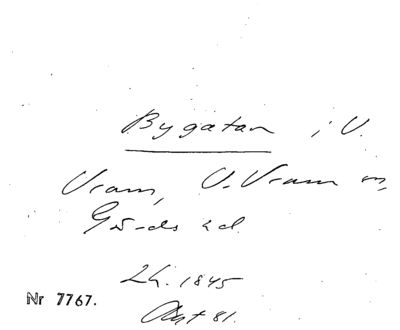 Bygatan i V.
Vram, V. Vram sn,
Gärds hd.
Lh. 1845
Nr 7767.
Akt 81.